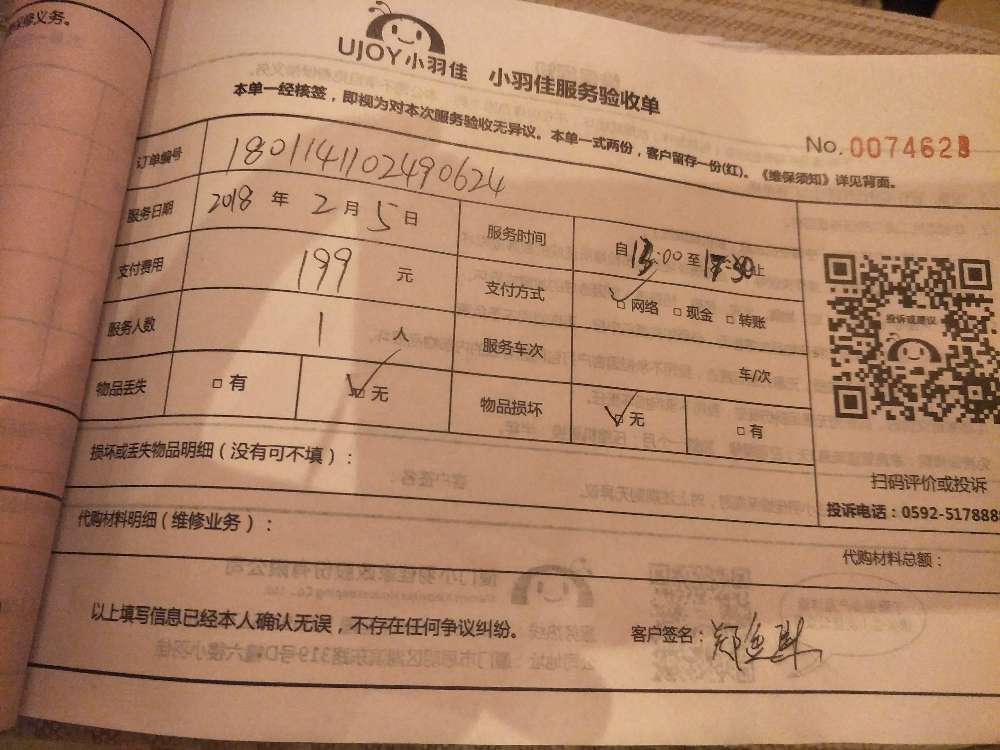 修义务。
UJOY小羽佳 小羽佳服务验收单
本单一经核签，即视为对本次服务验收无异议。本单一式两份，客户留存一份(红)。《维保须知》详见背面。
No. 0074623
订单编号 1801141102490624
服务日期 2018 年 2 月 5 日 服务时间 自13:00至17:30止
支付费用 199 元 支付方式 □网络 □现金 □转账
服务人数 1 人 服务车次 车/次
物品丢失 □有 ☑无 物品损坏 ☑无 □有
投诉或建议
扫码评价或投诉
投诉电话：0592-517888
损坏或丢失物品明细（没有可不填）：
代购材料明细（维修业务）：
代购材料总额：
以上填写信息已经本人确认无误，不存在任何争议纠纷。
客户签名：